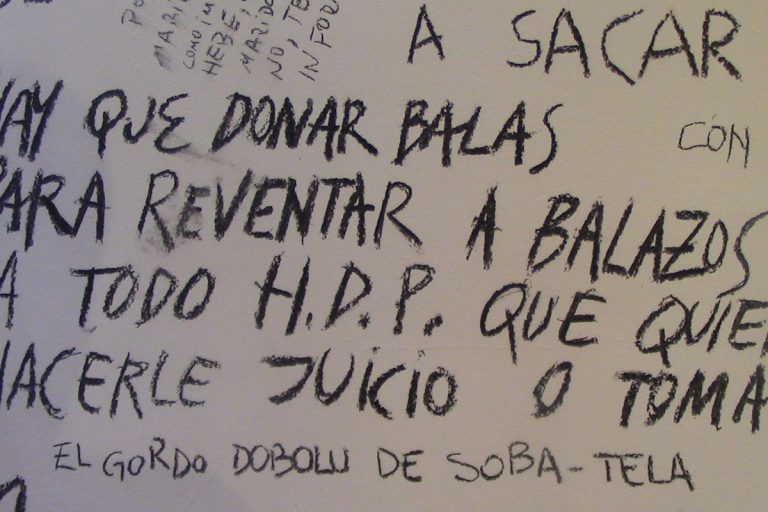 A SACAR
HAY QUE DONAR BALAS
CON
PARA REVENTAR A BALAZOS
A TODO H.D.P. QUE QUIE
HACERLE JUICIO O TOMA
EL GORDO DOBOLU DE SOBA-TELA
PO
MARI
COMO
HEBE,
MARIDO
NO, TE
IN FOR